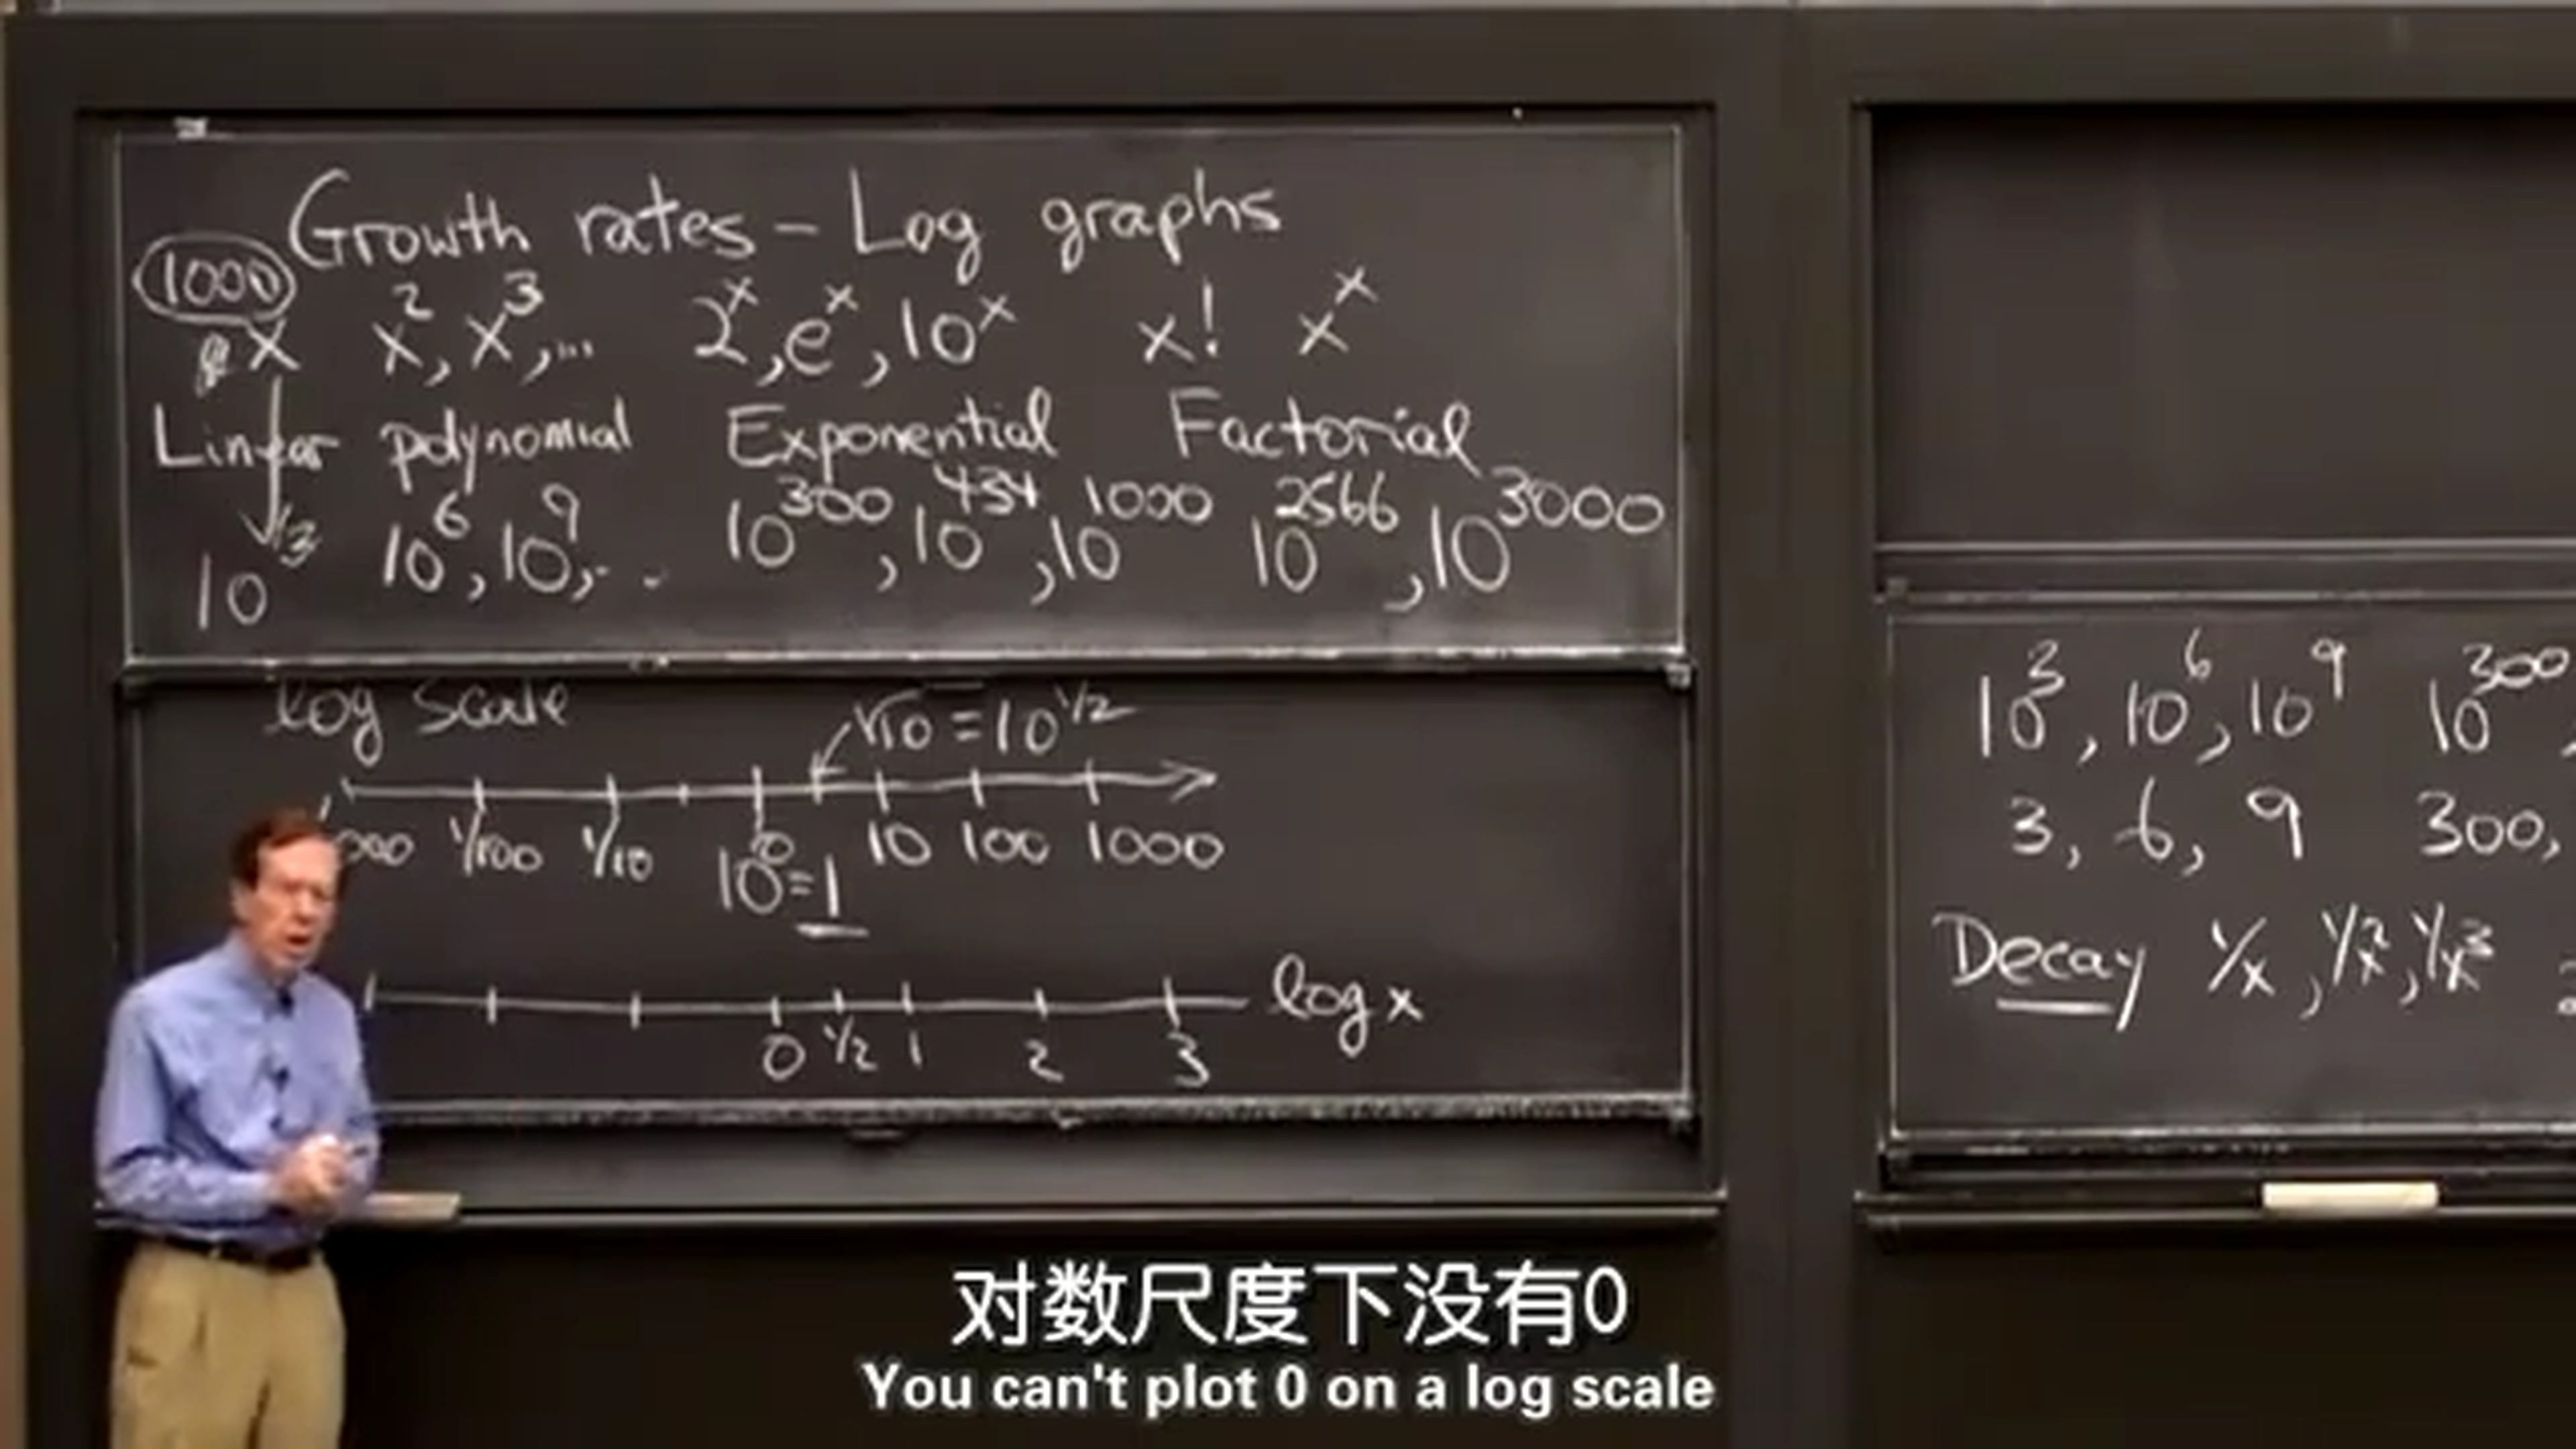 Growth rates - Log graphs
1000
cx x², x³, ... 2ˣ, eˣ, 10ˣ x! xˣ
Linear polynomial Exponential Factorial
10³ 10⁶, 10⁹, .. 10³⁰⁰, 10⁴³⁴, 10¹⁰⁰⁰ 10²⁵⁶⁶, 10³⁰⁰⁰
log scale
√10 = 10^1/2
1/100 1/10 10⁰=1 10 100 1000
log x
0 1/2 1 2 3
10³, 10⁶, 10⁹ 10³⁰⁰,
3, 6, 9 300,
Decay 1/x, 1/x², 1/x³
对数尺度下没有0
You can't plot 0 on a log scale